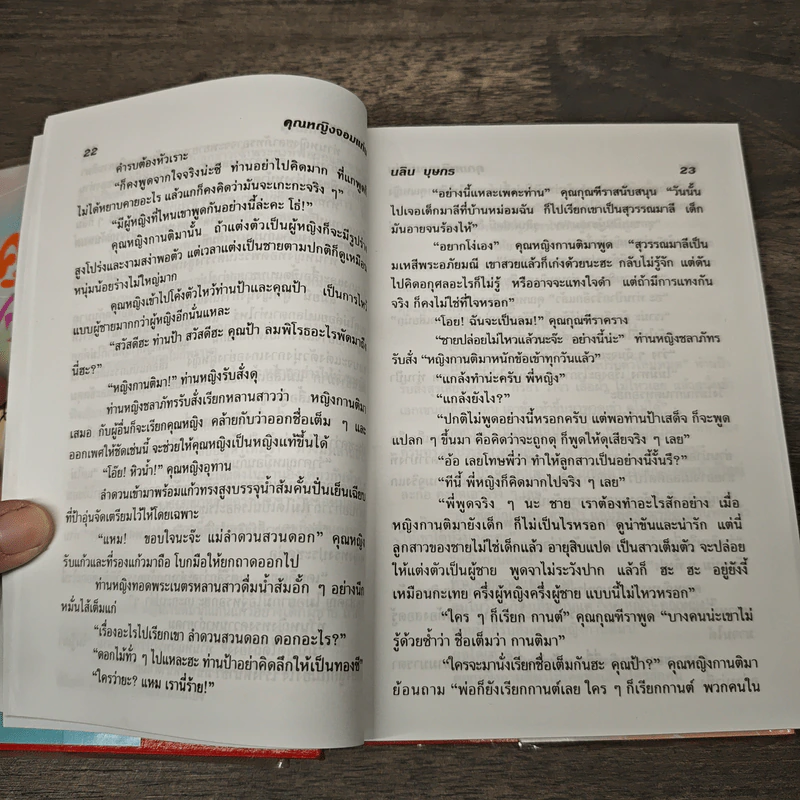 22
คุณหญิงจอมแก่น
คำรบต้องหัวเราะ
"ก็คงพูดจากใจจริงน่ะซี ท่านอย่าไปคิดมาก ที่แกพูด
ไม่ได้หยาบคายอะไร แล้วแกก็คงคิดว่ามันจะเกะกะจริง ๆ"
"มีผู้หญิงที่ไหนเขาพูดกันอย่างนี้ล่ะคะ โธ่!"
คุณหญิงกานติมานั้น ถ้าแต่งตัวเป็นผู้หญิงก็จะมีรูปร่าง
สูงโปร่งและงามสง่าพอตัว แต่เวลาแต่งเป็นชายตามปกติก็ดูเหมือน
หนุ่มน้อยร่างไม่ใหญ่มาก
คุณหญิงเข้าไปโค้งตัวไหว้ท่านป้าและคุณป้า เป็นการไหว้
แบบผู้ชายมากกว่าผู้หญิงอีกนั่นแหละ
"สวัสดีฮะ ท่านป้า สวัสดีฮะ คุณป้า ลมพิโรธอะไรพัดมาถึง
นี่ฮะ?"
"หญิงกานติมา!" ท่านหญิงรับสั่งดุ
ท่านหญิงชลาภัทรรับสั่งเรียกหลานสาวว่า หญิงกานติมา
เสมอ กับผู้อื่นก็จะเรียกคุณหญิง คล้ายกับว่าออกชื่อเต็ม ๆ และ
ออกเพศให้ชัดเช่นนี้ จะช่วยให้คุณหญิงเป็นหญิงแท้ขึ้นได้
"โอ๊ย! หิวน้ำ!" คุณหญิงอุทาน
ลำดวนเข้ามาพร้อมแก้วทรงสูงบรรจุน้ำส้มคั้นปั่นเย็นเฉียบ
ที่ป้าอุ่นจัดเตรียมไว้ให้โดยเฉพาะ
"แหม! ขอบใจนะจ๊ะ แม่ลำดวนสวนดอก" คุณหญิง
รับแก้วและที่รองแก้วมาถือ โบกมือให้ยกถาดออกไป
ท่านหญิงทอดพระเนตรหลานสาวดื่มน้ำส้มอั้ก ๆ อย่างนึก
หมั่นไส้เต็มแก่
"เรื่องอะไรไปเรียกเขา ลำดวนสวนดอก ดอกอะไร?"
"ดอกไม้ทั่ว ๆ ไปแหละฮะ ท่านป้าอย่าคิดลึกให้เป็นทองซี"
"ใครว่ายะ? แหม เรานี่ร้าย!"
นลิน บุษกร
23
"อย่างนี้แหละเพคะท่าน" คุณกุณฑีราสนับสนุน "วันนั้น
ไปเจอเด็กมาลีที่บ้านหม่อมฉัน ก็ไปเรียกเขาเป็นสุวรรณมาลี เด็ก
มันอายจนร้องไห้"
"อยากโง่เอง" คุณหญิงกานติมาพูด "สุวรรณมาลีเป็น
มเหสีพระอภัยมณี เขาสวยแล้วก็เก่งด้วยนะฮะ กลับไม่รู้จัก แต่ดัน
ไปคิดอกุศลอะไรก็ไม่รู้ หรืออาจจะแทงใจดำ แต่ถ้ามีการแทงกัน
จริง ก็คงไม่ใช่ที่ใจหรอก"
"โอย! ฉันจะเป็นลม!" คุณกุณฑีราคราง
"ชายปล่อยไม่ไหวแล้วนะจ๊ะ อย่างนี้น่ะ" ท่านหญิงชลาภัทร
รับสั่ง "หญิงกานติมาหนักข้อเข้าทุกวันแล้ว"
"แกล้งทำน่ะครับ พี่หญิง"
"แกล้งยังไง?"
"ปกติไม่พูดอย่างนี้หรอกครับ แต่พอท่านป้าเสด็จ ก็จะพูด
แปลก ๆ ขึ้นมา คือคิดว่าจะถูกดุ ก็พูดให้ดุเสียจริง ๆ เลย"
"อ้อ เลยโทษพี่ว่า ทำให้ลูกสาวเป็นอย่างนี้งั้นรึ?"
"ทีนี้ พี่หญิงก็คิดมากไปจริง ๆ เลย"
"พี่พูดจริง ๆ นะ ชาย เราต้องทำอะไรสักอย่าง เมื่อ
หญิงกานติมายังเด็ก ก็ไม่เป็นไรหรอก ดูน่าขันและน่ารัก แต่นี่
ลูกสาวของชายไม่ใช่เด็กแล้ว อายุสิบแปด เป็นสาวเต็มตัว จะปล่อย
ให้แต่งตัวเป็นผู้ชาย พูดจาไม่ระวังปาก แล้วก็ ฮะ ฮะ อยู่ยังงี้
เหมือนกะเทย ครึ่งผู้หญิงครึ่งผู้ชาย แบบนี้ไม่ไหวหรอก"
"ใคร ๆ ก็เรียก กานต์" คุณกุณฑีราพูด "บางคนน่ะเขาไม่
รู้ด้วยซ้ำว่า ชื่อเต็มว่า กานติมา"
"ใครจะมานั่งเรียกชื่อเต็มกันฮะ คุณป้า?" คุณหญิงกานติมา
ย้อนถาม "พ่อก็ยังเรียกกานต์เลย ใคร ๆ ก็เรียกกานต์ พวกคนใน